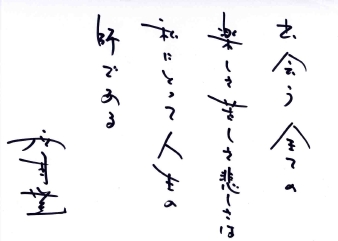 出会う全ての
楽しさ苦しさ悲しさは
私にとって人生の
師である